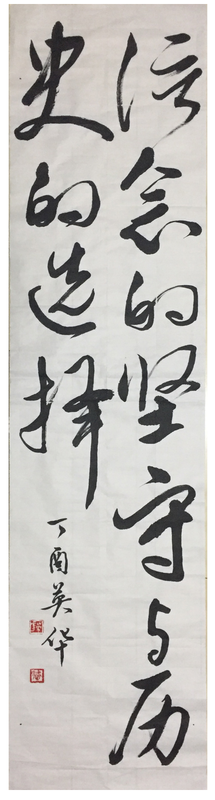 信念的坚守与历
史的选择
丁酉英华